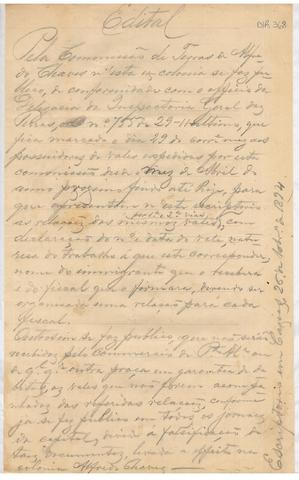 DIP. 368
Edital
Pela Commissão de Terras de Alfre-
do Chaves n'esta ex colonia se faz pu-
blico, de conformidade com o officio da
Delegacia da Inspectoria Geral das
Terras, n.º 755 de 29-11- ultimo, que
fica marcado o dia 19 do corr.e mez aos
possuidores de vales expedidos por esta
commissão desde o mez de Abril do
anno proximo findo até hoje, para
que apresentem n'este escriptorio
as relações dos mesmos vales, com
declaração do n.º e data do vale, natu-
resa do trabalho a que este corresponder,
nome do immigrante que o recebera
e do fiscal que o firmara, devendo ser
organisada uma relação para cada
fiscal.
Outrosim se faz publico que não serão
recebidos pelo Commercio de P.to Al.e ou
de q.q.r outra praça em garantia de de-
bito, os vales que não forem acompa-
nhados das referidas relações, conforme
ja se fez publico em todos os jornaes
da capital, devido a falsificação de
taes documentos, levada a effeito na
colonia Alfredo Chaves
Escriptorio em Caxias, 5 de de 1894